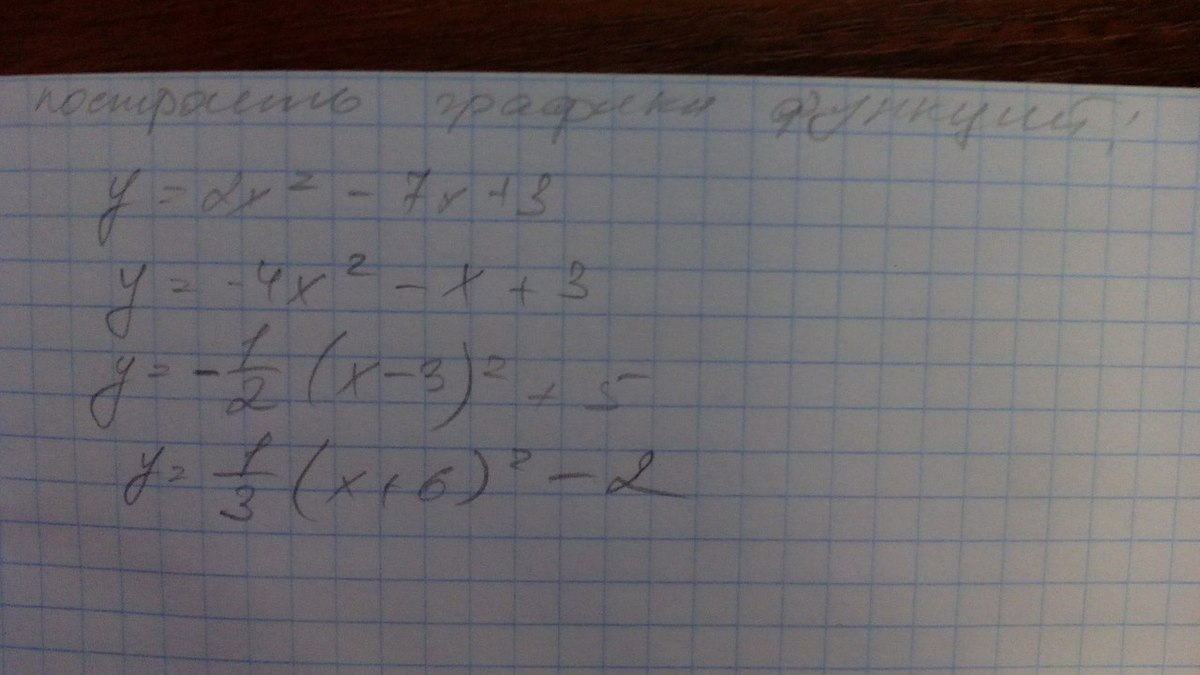 построить графики функций:
y = 2x² - 7x + 3
y = -4x² - x + 3
y = -1/2 (x-3)² + 5
y = 1/3 (x+6)² - 2